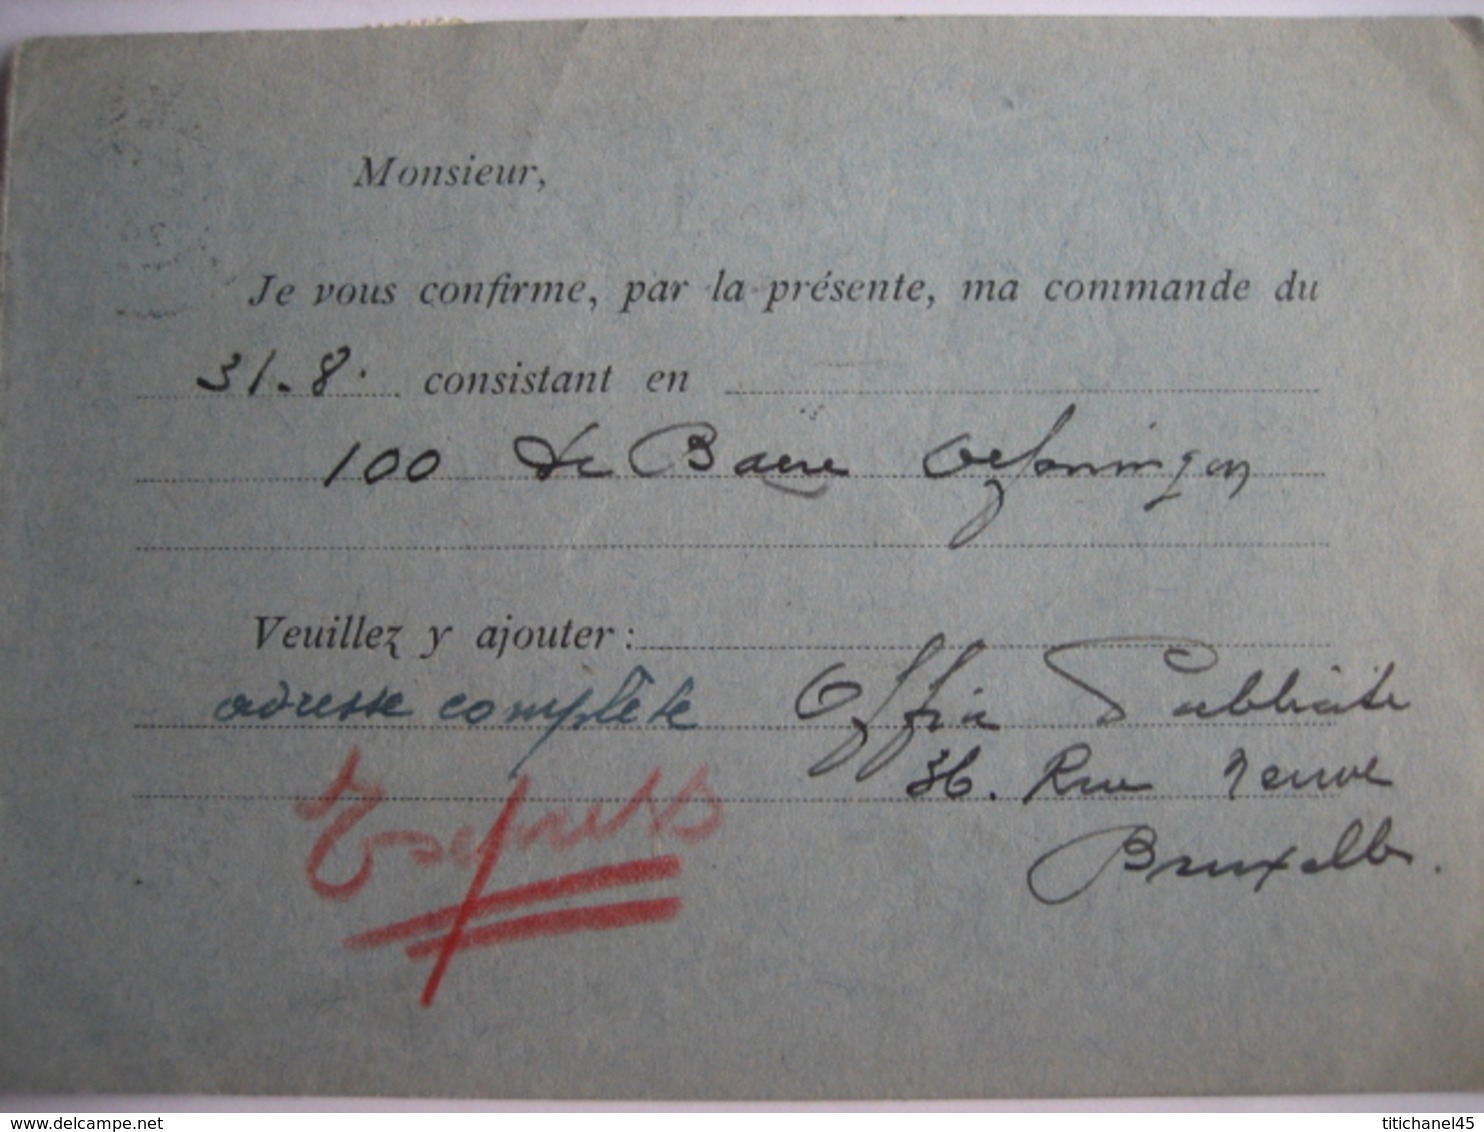 Monsieur,
Je vous confirme, par la présente, ma commande du
31-8. consistant en
100 de Baere
Veuillez y ajouter :
adresse complète Office Publicité
36. Rue Neuve
Express
Bruxelles.
titichanel45